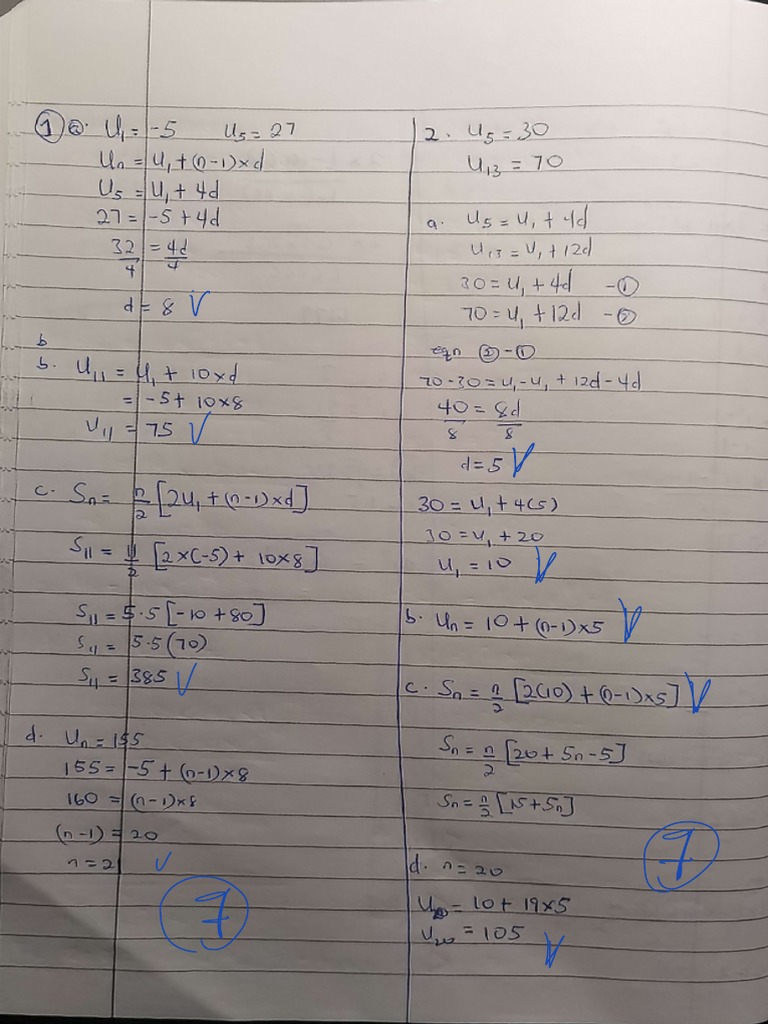 ① ⓐ. U₁ = -5 U₅ = 27
Uₙ = U₁ + (n-1)×d
U₅ = U₁ + 4d
27 = -5 + 4d
32/4 = 4d/4
d = 8 ✓
b
b. U₁₁ = U₁ + 10×d
= -5 + 10×8
U₁₁ = 75 ✓
c. Sₙ = n/2 [2U₁ + (n-1)×d]
S₁₁ = 11/2 [2×(-5) + 10×8]
S₁₁ = 5.5[-10 + 80]
S₁₁ = 5.5(70)
S₁₁ = 385 ✓
d. Uₙ = 155
155 = -5 + (n-1)×8
160 = (n-1)×8
(n-1) = 20
n = 21 ✓
7
2. U₅ = 30
U₁₃ = 70
a. U₅ = U₁ + 4d
U₁₃ = U₁ + 12d
30 = U₁ + 4d -①
70 = U₁ + 12d -②
eqn ②-①
70-30 = U₁-U₁ + 12d-4d
40/8 = 8d/8
d = 5 ✓
30 = U₁ + 4(5)
30 = U₁ + 20
U₁ = 10 ✓
b. Uₙ = 10 + (n-1)×5 ✓
c. Sₙ = n/2 [2(10) + (n-1)×5] ✓
Sₙ = n/2 [20 + 5n - 5]
Sₙ = n/2 [15 + 5n]
7
d. n = 20
U₂₀ = 10 + 19×5
U₂₀ = 105 ✓